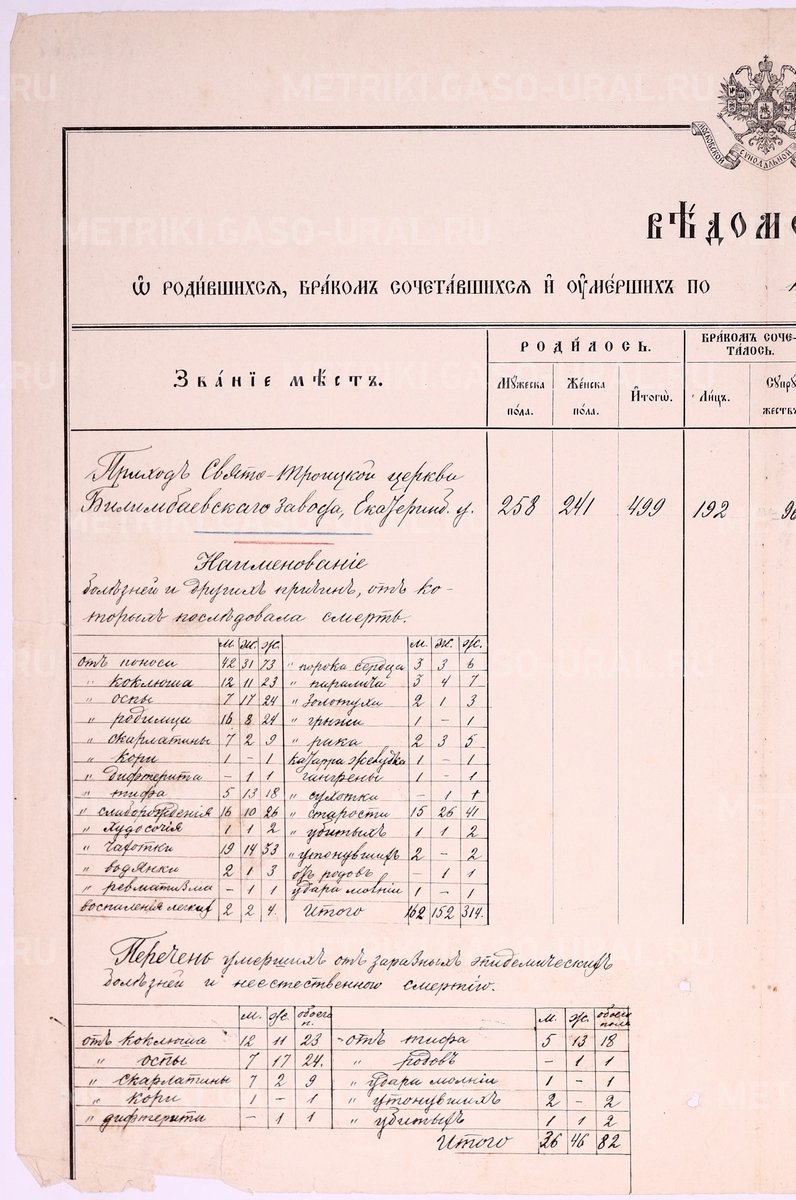 METRIKI.GASO-URAL.RU
МОСКОВСКОЙ СѴНОДАЛЬНОЙ
ВѢДОМО
Ѡ РОДИ́ВШИХСѦ, БРА́КОМЪ СОЧЕТА́ВШИХСѦ И҆ ОУ҆МЕ́РШИХЪ ПО
ЗВА́НІЕ МѢ́СТЪ.
РОДИ́ЛОСЬ.
БРА́КОМЪ СОЧЕ-
ТА́ЛОСЬ.
МꙊ́ЖЕСКА ПО́ЛА.
ЖЕ́НСКА ПО́ЛА.
И҆ТОГѠ̀.
ЛИ́ЦЪ.
СꙊПРꙊ
ЖЕСТВЪ
Приходъ Свято-Троицкой церкви
Билимбаевскаго завода, Екатеринб. у. 258 241 499 192
Наименованіе
болѣзней и другихъ причинъ, отъ ко-
торыхъ послѣдовала смерть.
М. Ж. Ж. М. Ж. Ж.
отъ поноса 42 31 73 " порока сердца 3 3 6
" коклюша 12 11 23 " паралича 3 4 7
" оспы 7 17 24 " золотухи 2 1 3
" родимца 16 8 24 " грыжи 1 – 1
" скарлатины 7 2 9 " рака 2 3 5
" кори 1 – 1 катарра желудка 1 – 1
" дифтерита – 1 1 гангрены 1 – 1
" тифа 5 13 18 " сухотки – 1 1
" слаборожденія 16 10 26 " старости 15 26 41
" худосочія 1 1 2 " убитыхъ 1 1 2
" чахотки 19 14 33 " утонувшихъ 2 – 2
" водянки 2 1 3 отъ родовъ – 1 1
" ревматизма – 1 1 удара молніи 1 – 1
воспаленія легкихъ 2 2 4. Итого 162 152 314.
Перечень умершихъ отъ заразныхъ эпидемическихъ
болѣзней и неестественною смертію.
М. Ж. обоего п. М. Ж. обоего пола
отъ коклюша 12 11 23 отъ тифа 5 13 18
" оспы 7 17 24. " родовъ – 1 1
" скарлатины 7 2 9 " удара молніи 1 – 1
" кори 1 – 1 " утонувшихъ 2 – 2
" дифтерита – 1 1 " убитыхъ 1 1 2
Итого 36 46 82